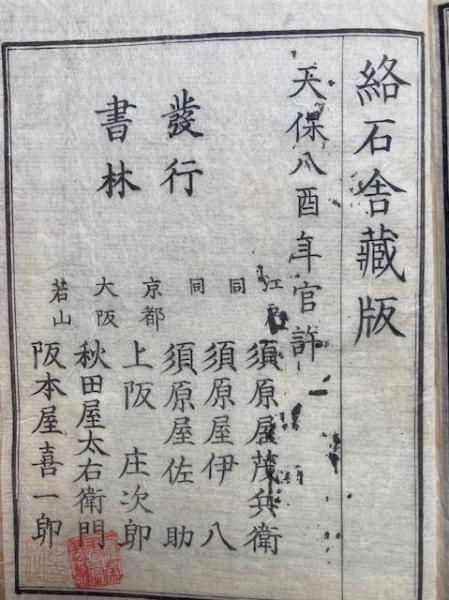 絡石舎藏版
天保八酉年官許
發行
書林
江
須原屋茂兵衛
同
須原屋伊八
同
須原屋佐助
京都
上阪庄次郎
大阪
秋田屋太右衛門
若山
阪本屋喜一郎